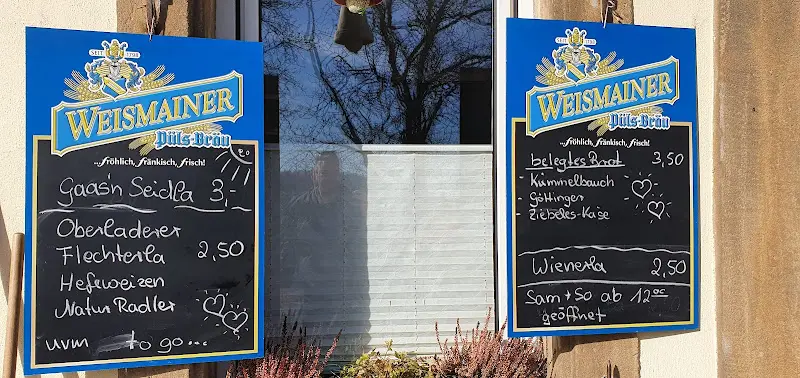 SEIT 1798
WEISMAINER
Püls-Bräu
...fröhlich, fränkisch, frisch!
Gaas'n Seidla 3,-
Oberladerer
Flechterla 2,50
Hefeweizen
Natur Radler
uvm to go...
SEIT 1798
WEISMAINER
Püls-Bräu
...fröhlich, fränkisch, frisch!
belegtes Brot 3,50
- Kümmelbauch
- Göttinger
- Ziebeles-Käse
Wienerla 2,50
Sam + So ab 12 00
geöffnet